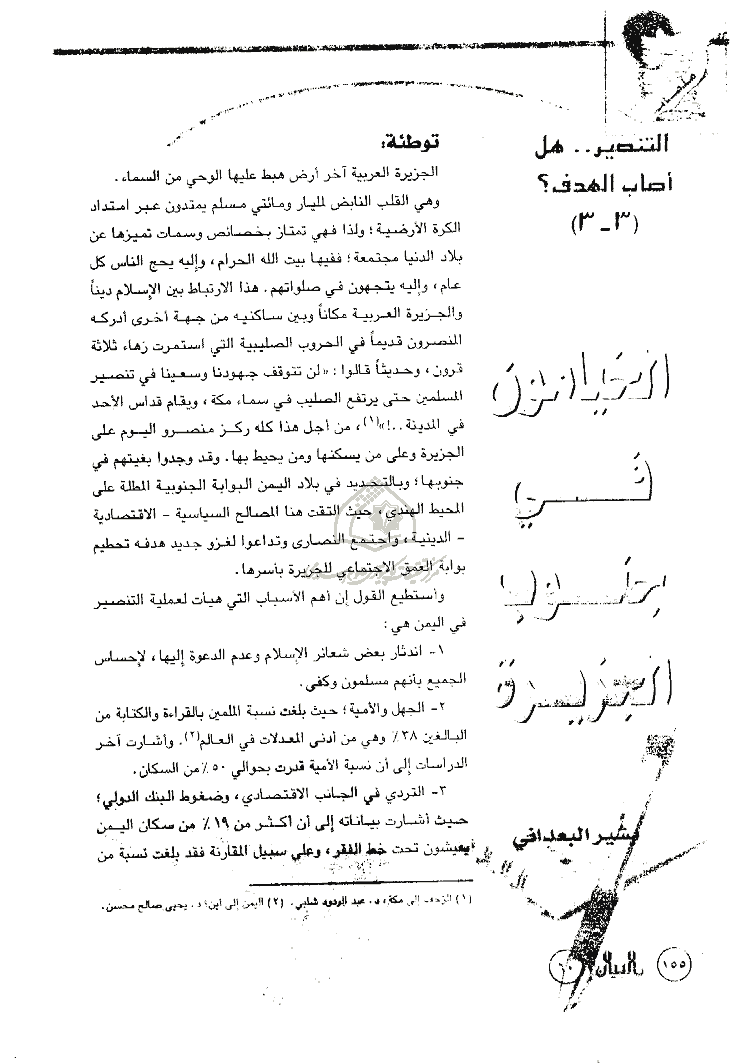 التنصير.. هل
أصاب الهدف؟
(٣-٣)
في
الجزيرة
بشير البعداني
توطئة:
الجزيرة العربية آخر أرض هبط عليها الوحي من السماء.
وهي القلب النابض لمليار ومائتي مسلم يمتدون عبر امتداد
الكرة الأرضية؛ ولذا فهي تمتاز بخصائص وسمات تميزها عن
بلاد الدنيا مجتمعة؛ ففيها بيت الله الحرام، وإليه يحج الناس كل
عام، وإليه يتجهون في صلواتهم. هذا الارتباط بين الإسلام ديناً
والجزيرة العربية مكاناً وبين ساكنيه من جهة أخرى أدركه
المنصرون قديماً في الحروب الصليبية التي استمرت زهاء ثلاثة
قرون، وحديثاً قالوا: «لن تتوقف جهودنا وسعينا في تنصير
المسلمين حتى يرتفع الصليب في سماء مكة، ويقام قداس الأحد
في المدينة..!»(١)، من أجل هذا كله ركز منصرو اليوم على
الجزيرة وعلى من يسكنها ومن يحيط بها. وقد وجدوا بغيتهم في
جنوبها؛ وبالتحديد في بلاد اليمن البوابة الجنوبية المطلة على
المحيط الهندي، حيث التقت هنا المصالح السياسية - الاقتصادية
- الدينية، واجتمع النصارى وتداعوا لغزو جديد هدفه تحطيم
بوابة العمق الاجتماعي للجزيرة بأسرها.
وأستطيع القول إن أهم الأسباب التي هيأت لعملية التنصير
في اليمن هي:
١- اندثار بعض شعائر الإسلام وعدم الدعوة إليها، لإحساس
الجميع بأنهم مسلمون وكفى.
٢- الجهل والأمية؛ حيث بلغت نسبة الملمين بالقراءة والكتابة من
البالغين ٣٨٪ وهي من أدنى المعدلات في العالم(٢). وأشارت آخر
الدراسات إلى أن نسبة الأمية قدرت بحوالي ٥٠٪ من السكان.
٣- التردي في الجانب الاقتصادي، وضغوط البنك الدولي؛
حيث أشارت بياناته إلى أن أكثر من ١٩٪ من سكان اليمن
يعيشون تحت خط الفقر، وعلى سبيل المقارنة فقد بلغت نسبة من
(١) الزحف إلى مكة، د. عبد الودود شلبي. (٢) اليمن إلى أين؛ د. يحيى صالح محسن.
١٥٥ البيان